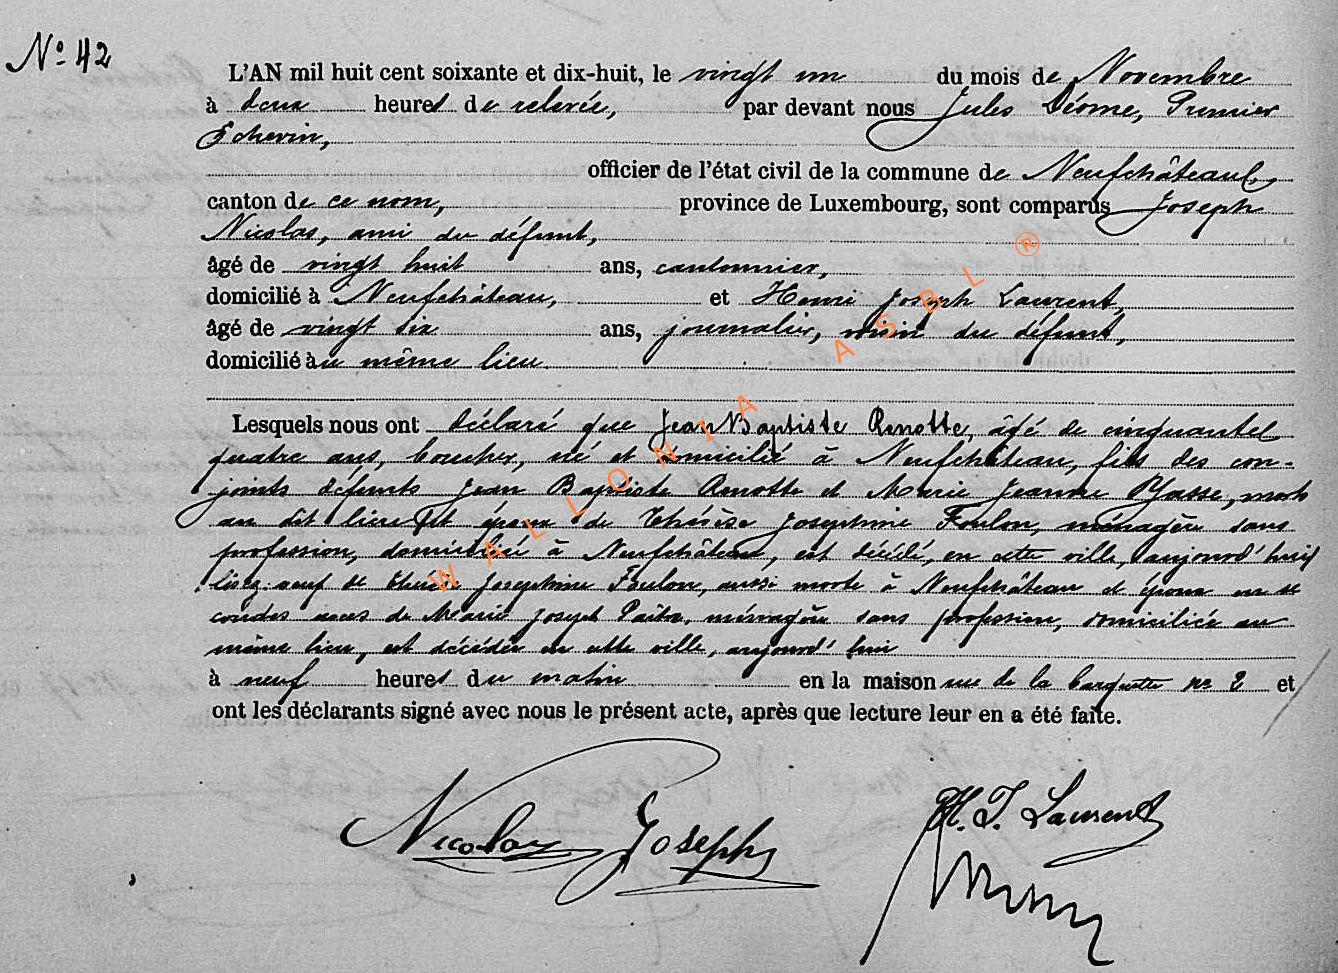 N° 42
L'AN mil huit cent soixante et dix-huit, le vingt un du mois de Novembre
à deux heures de relevée, par devant nous Jules Déome, Premier
Echevin,
officier de l'état civil de la commune de Neufchâteau,
canton de ce nom, province de Luxembourg, sont comparus Joseph
Nicolas, ami du défunt,
âgé de vingt huit ans, cantonnier,
domicilié à Neufchâteau, et Henri Joseph Laurent,
âgé de vingt six ans, journalier, voisin du défunt,
domicilié au même lieu
Lesquels nous ont déclaré que Jean Baptiste Renotte, âgé de cinquante
quatre ans, boucher, né et domicilié à Neufchâteau, fils des con-
joints défunts Jean Baptiste Renotte et Marie Jeanne morts
au dit lieu et époux de Thérèse Josephine Foulon, ménagère sans
profession, domiciliée à Neufchâteau, est décédé, en cette ville, aujourd'hui
lisez: veuf de Thérèse Josephine Foulon, aussi morte à Neufchâteau et époux en se
condes noces de Marie Joseph ménagère sans profession, domiciliée au
même lieu, est décédé en cette ville, aujourd'hui
à neuf heures du matin en la maison rue de la barquette n° 2 et
ont les déclarants signé avec nous le présent acte, après que lecture leur en a été faite.
Nicolas Joseph
H. J. Laurent
WALLONIA ASBL ®